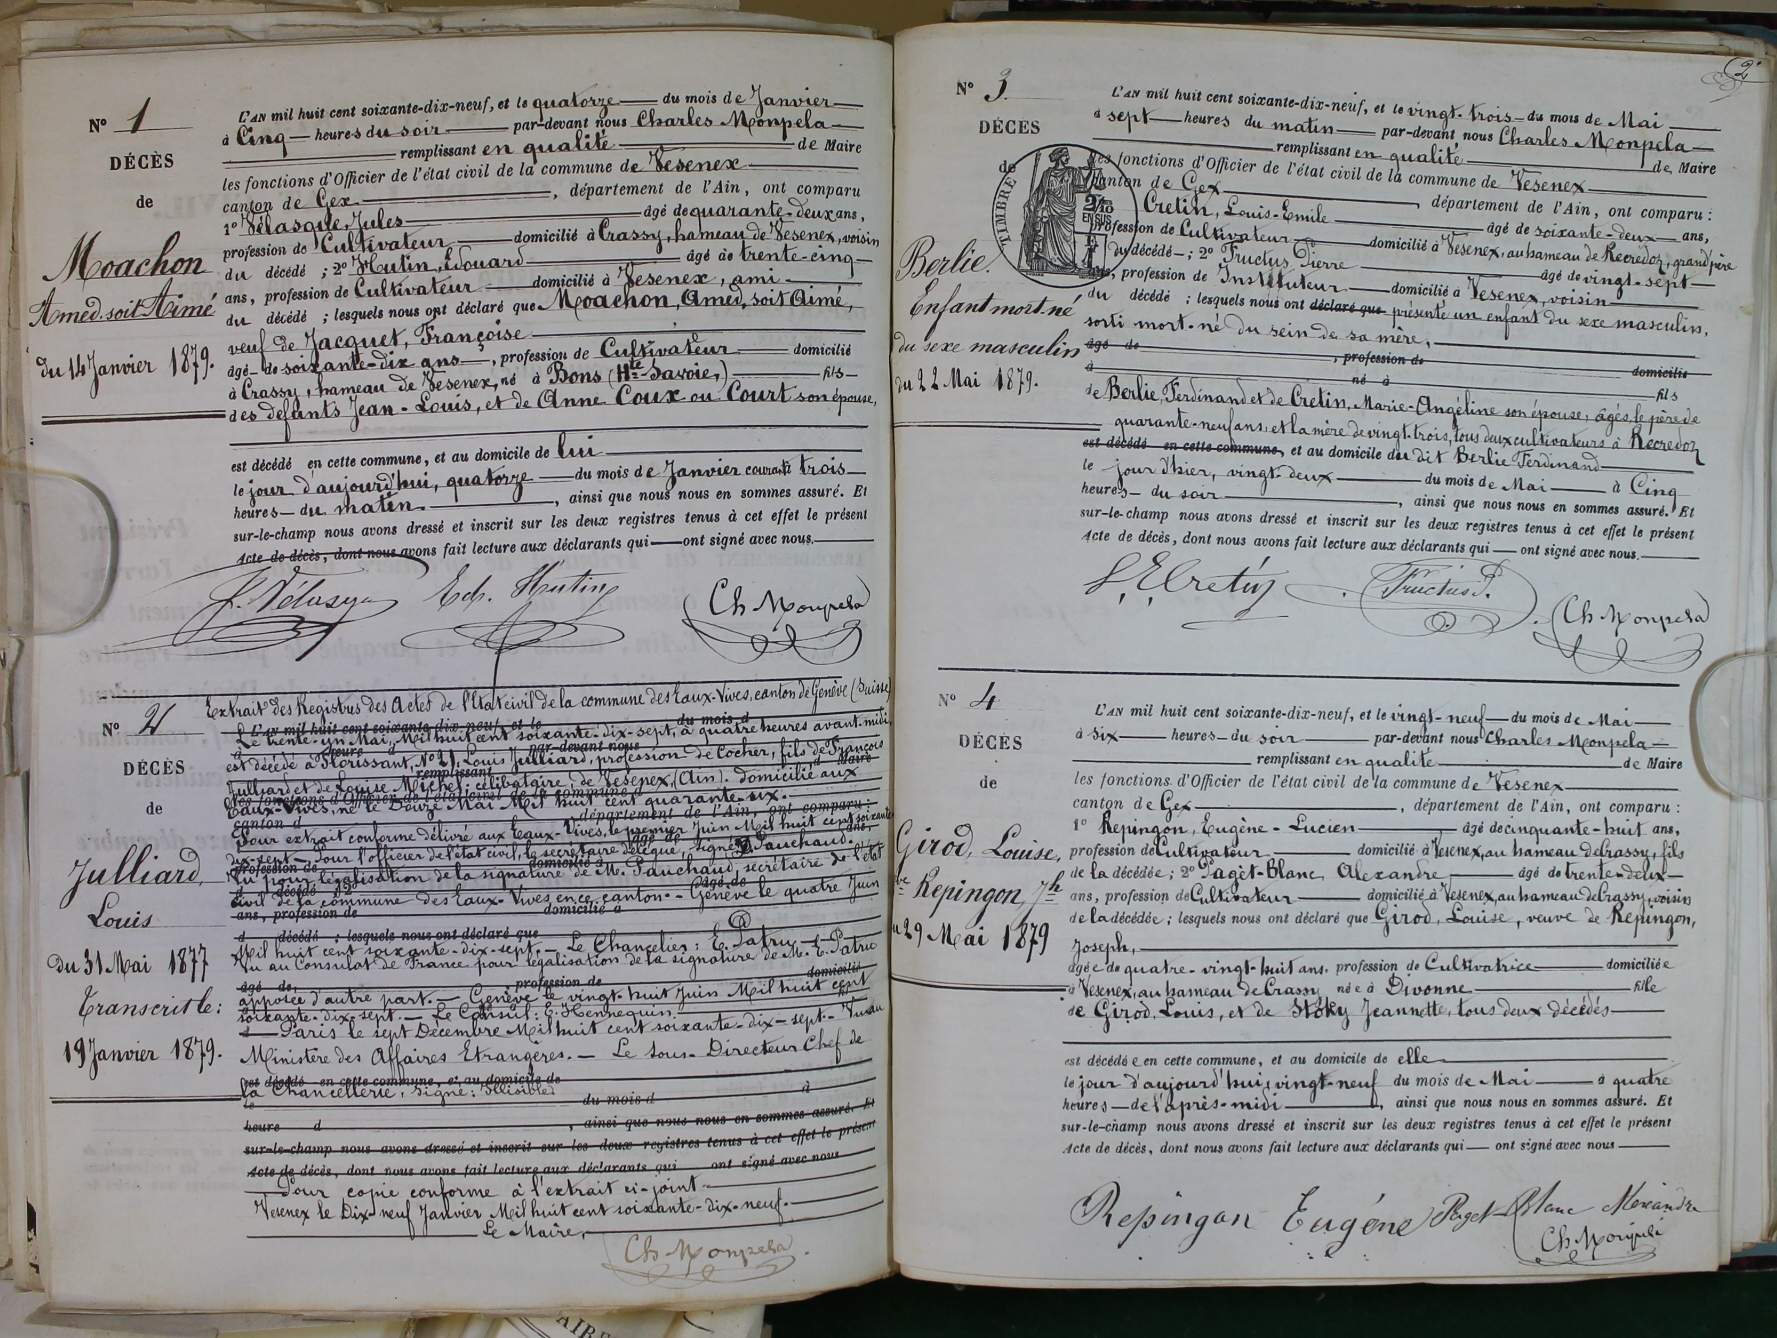 N° 1
DÉCÈS
de
Moachon
Amed. soit Aimé
du 14 Janvier 1879.
L'AN mil huit cent soixante-dix-neuf, et le quatorze du mois de Janvier
à Cinq heures du soir par-devant nous Charles Monpela
remplissant en qualité de Maire
les fonctions d'Officier de l'état civil de la commune de Vesenex
canton de Gex, département de l'Ain, ont comparu
1° Vélasque, Jules âgé de quarante-deux ans,
profession de Cultivateur domicilié à Crassy, hameau de Vesenex, voisin
du décédé ; 2° Hutin, Edouard âgé de trente-cinq
ans, profession de Cultivateur domicilié à Vesenex, ami
du décédé ; lesquels nous ont déclaré que Moachon, Amed, soit Aimé,
veuf de Jacquet, Françoise
âgé de soixante-dix ans, profession de Cultivateur domicilié
à Crassy, hameau de Vesenex, né à Bons (Hte Savoie,) fils
des défunts Jean-Louis, et de Anne Coux ou Court son épouse,
est décédé en cette commune, et au domicile de lui
le jour d'aujourd'hui, quatorze du mois de Janvier courant à trois
heures du matin, ainsi que nous nous en sommes assuré. Et
sur-le-champ nous avons dressé et inscrit sur les deux registres tenus à cet effet le présent
Acte de décès, dont nous avons fait lecture aux déclarants qui ont signé avec nous.
Ed. Hutin
Ch Monpela
N° 2
DÉCÈS
de
Julliard,
Louis
Du 31 Mai 1877
Transcrit le :
19 Janvier 1879.
Extrait des Registres des Actes de l'Etat civil de la commune des Eaux-Vives, canton de Genève (Suisse)
L'AN mil huit cent soixante-dix-neuf, et le du mois d
Le trente-un Mai, Mil huit cent soixante-dix-sept, à quatre heures avant-midi,
à heure d par-devant nous
est décédé à Florissant, N° 21, Louis Julliard, profession de Cocher, fils de François
remplissant d Maire
Julliard et de Louise Michel, célibataire, de Vesenex, (Ain). domicilié aux
les fonctions d'Officier de l'état civil de la commune d
Eaux-Vives, né le Douze Mai Mil huit cent quarante-six.
canton d, département de l'Ain, ont comparu :
Pour extrait conforme délivré aux Eaux-Vives, le premier Juin Mil huit cent soixante
âgé de ans,
dix-sept. Pour l'officier de l'état civil, le secrétaire délégué, signé Pauchaud.
profession de domicilié à
Vu pour légalisation de la signature de M. Pauchaud, secrétaire de l'état
d décédé ; 2° âgé de
civil de la commune des Eaux-Vives en ce canton. - Genève le quatre Juin
ans, profession de domicilié à
d décédé ; lesquels nous ont déclaré que
Mil huit cent soixante-dix-sept. - Le Chancelier : E. Patru
Vu au Consulat de France pour légalisation de la signature de M. E. Patru
âgé de, profession de domicilié
apposée d'autre part. - Genève le vingt-huit Juin Mil huit cent
soixante-dix-sept - Le Consul : E. Hennequin.
Paris le sept Décembre Mil huit cent soixante-dix-sept - Vu au
Ministère des Affaires Etrangères. - Le Sous-Directeur Chef de
est décédé en cette commune, et au domicile de
la Chancellerie, Signé : Illisible
le du mois d à
heure d, ainsi que nous nous en sommes assuré. Et
sur-le-champ nous avons dressé et inscrit sur les deux registres tenus à cet effet le présent
Acte de décès, dont nous avons fait lecture aux déclarants qui ont signé avec nous
Pour copie conforme à l'extrait ci-joint
Vesenex le Dix-neuf Janvier Mil huit cent soixante-dix-neuf.
Le Maire,
Ch Monpela
2
N° 3.
DÉCÈS
de
Berlie.
Enfant mort-né
du sexe masculin
du 22 Mai 1879.
TIMBRE
2/10
EN SUS
L'AN mil huit cent soixante-dix-neuf, et le vingt-trois du mois de Mai
à sept heures du matin par-devant nous Charles Monpela
remplissant en qualité de Maire
les fonctions d'Officier de l'état civil de la commune de Vesenex
canton de Gex, département de l'Ain, ont comparu :
Cretin, Louis-Emile âgé de soixante-deux ans,
profession de Cultivateur domicilié à Vesenex, au hameau de Recredoz, grand père
du décédé ; 2° Fructus Pierre âgé de vingt-sept
ans, profession de Instituteur domicilié à Vesenex, voisin
du décédé ; lesquels nous ont déclaré que présenté un enfant du sexe masculin,
sorti mort-né du sein de sa mère,
âgé de, profession de domicilié
à né à fils
de Berlie, Ferdinand et de Cretin, Marie-Angéline son épouse, âgés, le père de
quarante-neuf ans, et la mère de vingt-trois, tous deux cultivateurs à Recredoz
est décédé en cette commune, et au domicile du dit Berlie Ferdinand
le jour d'hier, vingt-deux du mois de Mai à Cinq
heures du soir, ainsi que nous nous en sommes assuré. Et
sur-le-champ nous avons dressé et inscrit sur les deux registres tenus à cet effet le présent
Acte de décès, dont nous avons fait lecture aux déclarants qui ont signé avec nous.
L. E. Cretin
Fructus P.
Ch Monpela
N° 4
DÉCÈS
de
Girod, Louise,
ve Repingon Jh
du 29 Mai 1879
L'AN mil huit cent soixante-dix-neuf, et le vingt-neuf du mois de Mai
à six heures du soir par-devant nous Charles Monpela
remplissant en qualité de Maire
les fonctions d'Officier de l'état civil de la commune de Vesenex
canton de Gex, département de l'Ain, ont comparu :
1° Repingon, Eugène-Lucien âgé de cinquante-huit ans,
profession de Cultivateur domicilié à Vesenex, au hameau de Crassy, fils
de la décédée ; 2° Paget-Blanc, Alexandre âgé de trente-deux
ans, profession de Cultivateur domicilié à Vesenex, au hameau de Crassy, voisin
de la décédée ; lesquels nous ont déclaré que Girod, Louise, veuve de Repingon,
Joseph,
âgée de quatre-vingt-huit ans, profession de Cultivatrice domiciliée
à Vesenex, au hameau de Crassy née à Divonne fille
de Girod, Louis, et de Stoky Jeannette, tous deux décédés
est décédée en cette commune, et au domicile de elle
le jour d'aujourd'hui, vingt-neuf du mois de Mai à quatre
heures de l'après-midi, ainsi que nous nous en sommes assuré. Et
sur-le-champ nous avons dressé et inscrit sur les deux registres tenus à cet effet le présent
Acte de décès, dont nous avons fait lecture aux déclarants qui ont signé avec nous
Repingon Eugéne Paget-Blanc Alexandre
Ch Monpela